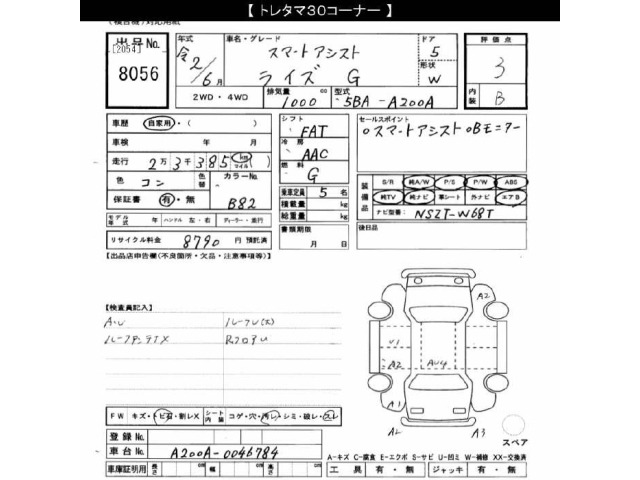 【 トレタマ30コーナー 】
(複合機)対応用紙
出品No.
[2054]
8056
年式
令2/6月
車名・グレード
スマートアシスト
ライズ G
ドア
5
形状
W
評価点
3
内装
B
2WD・4WD
排気量
1000 cc
型式
5BA-A200A
車歴 自家用・( )
車検 年 月
走行 2万3千385 km マイル
色 コン
色替
カラーNo.
B82
保証書 有・無
モデル年式 年 ハンドル 左・右 ディーラー・並行
リサイクル料金 8790 円 預託済
シフト
FAT
冷房
AAC
燃料
G
乗車定員 5 名
積載量 kg
総重量 kg
書類期限
月 日
セールスポイント
○スマートアシスト ○Bモニター
装備品
S/R 純A/W P/S P/W ABS
純TV 純ナビ 革シート 外ナビ エアB
ナビ型番: NSZT-W68T
後日品
【出品店申告欄(不良箇所・欠品・注意事項等)】
【検査員記入】
A・U
ルーフU(大)
RフロアU
FW キズ・トビ石・割レX
シート内装 コゲ・穴・汚レ・シミ・破レ・スレ
登録No.
車台No. A200A-0046784
車庫証明用 長さ cm 幅 cm 高さ cm
A2
U1
A2
AU4
A1
A2
A3
スペア
A-キズ C-腐食 E-エクボ S-サビ U-凹ミ W-補修 XX-交換済
工具 有・無 ジャッキ 有・無